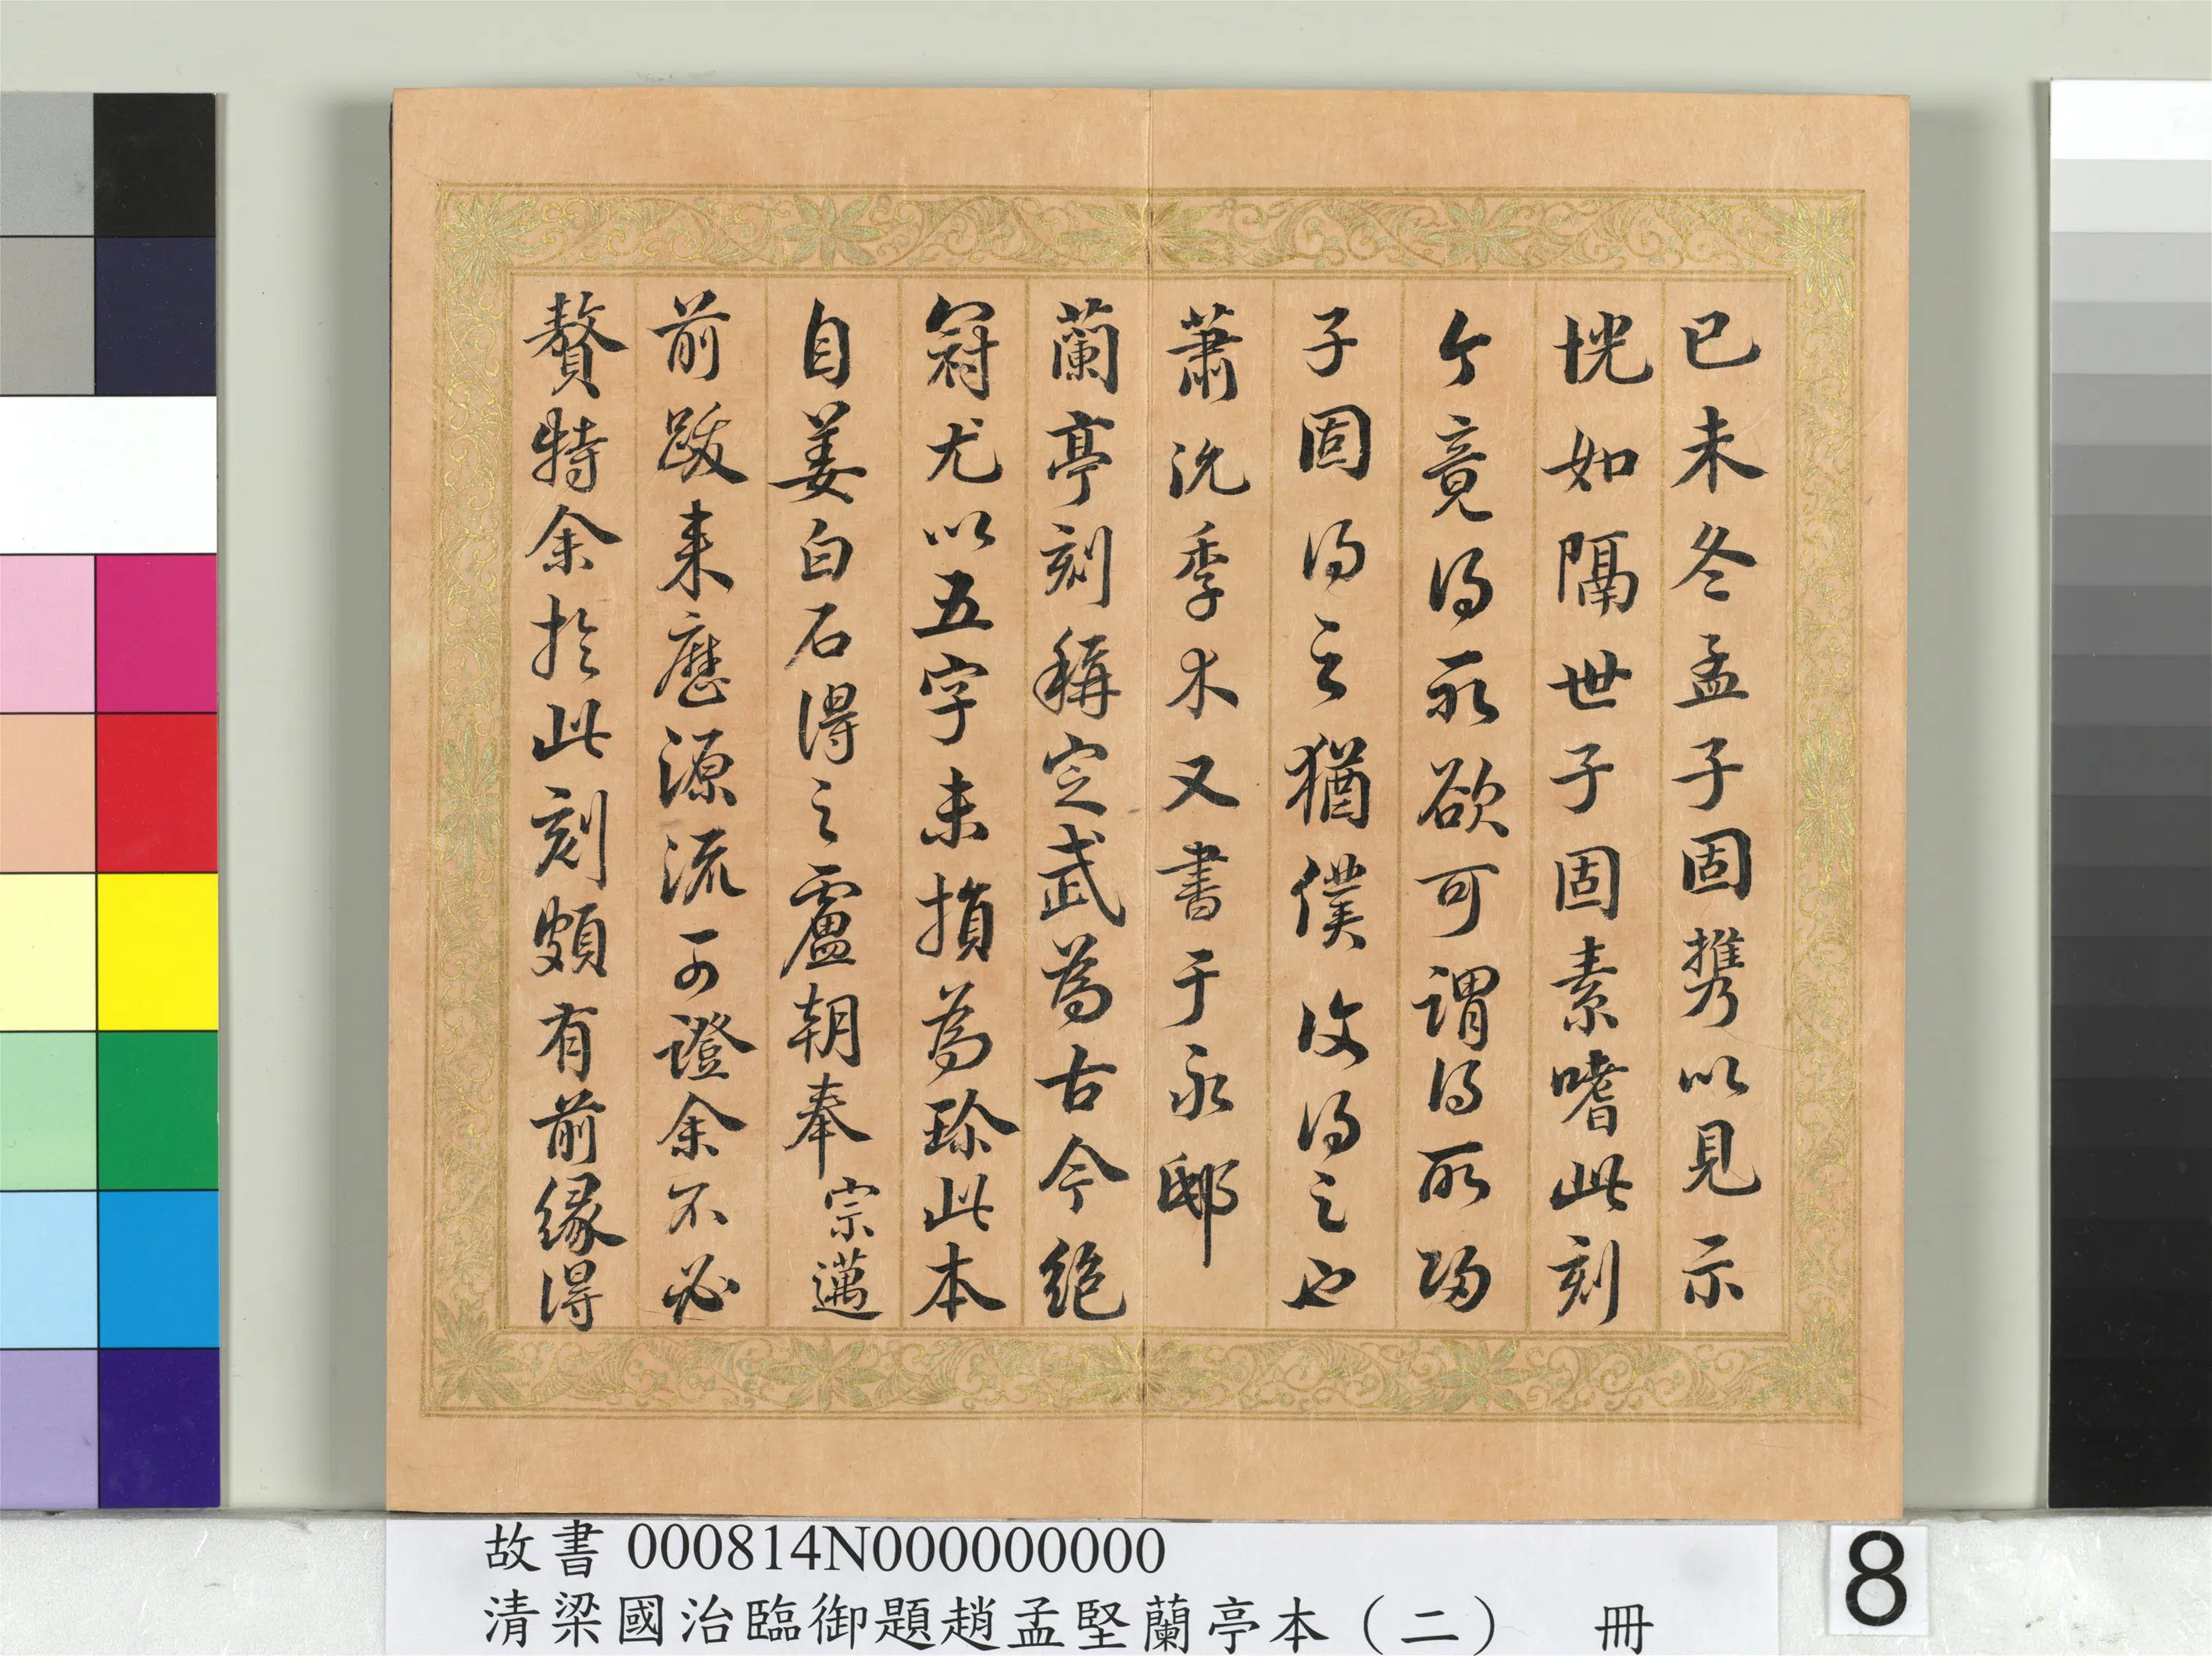 已未冬孟子固携以見示
恍如隔世子固素嗜此刻
今竟得所欲可謂得所歸
子固得之猶僕汝得之也
蕭沇季木又書于永邸
蘭亭刻稱定武為古今絕
冠尤以五字未損為珍此本
自姜白石得之盧朝奉宗邁
前跋来歷源流可證余不必
贅特余於此刻頗有前緣得
故書 000814N000000000
清梁國治臨御題趙孟堅蘭亭本（二） 冊
8